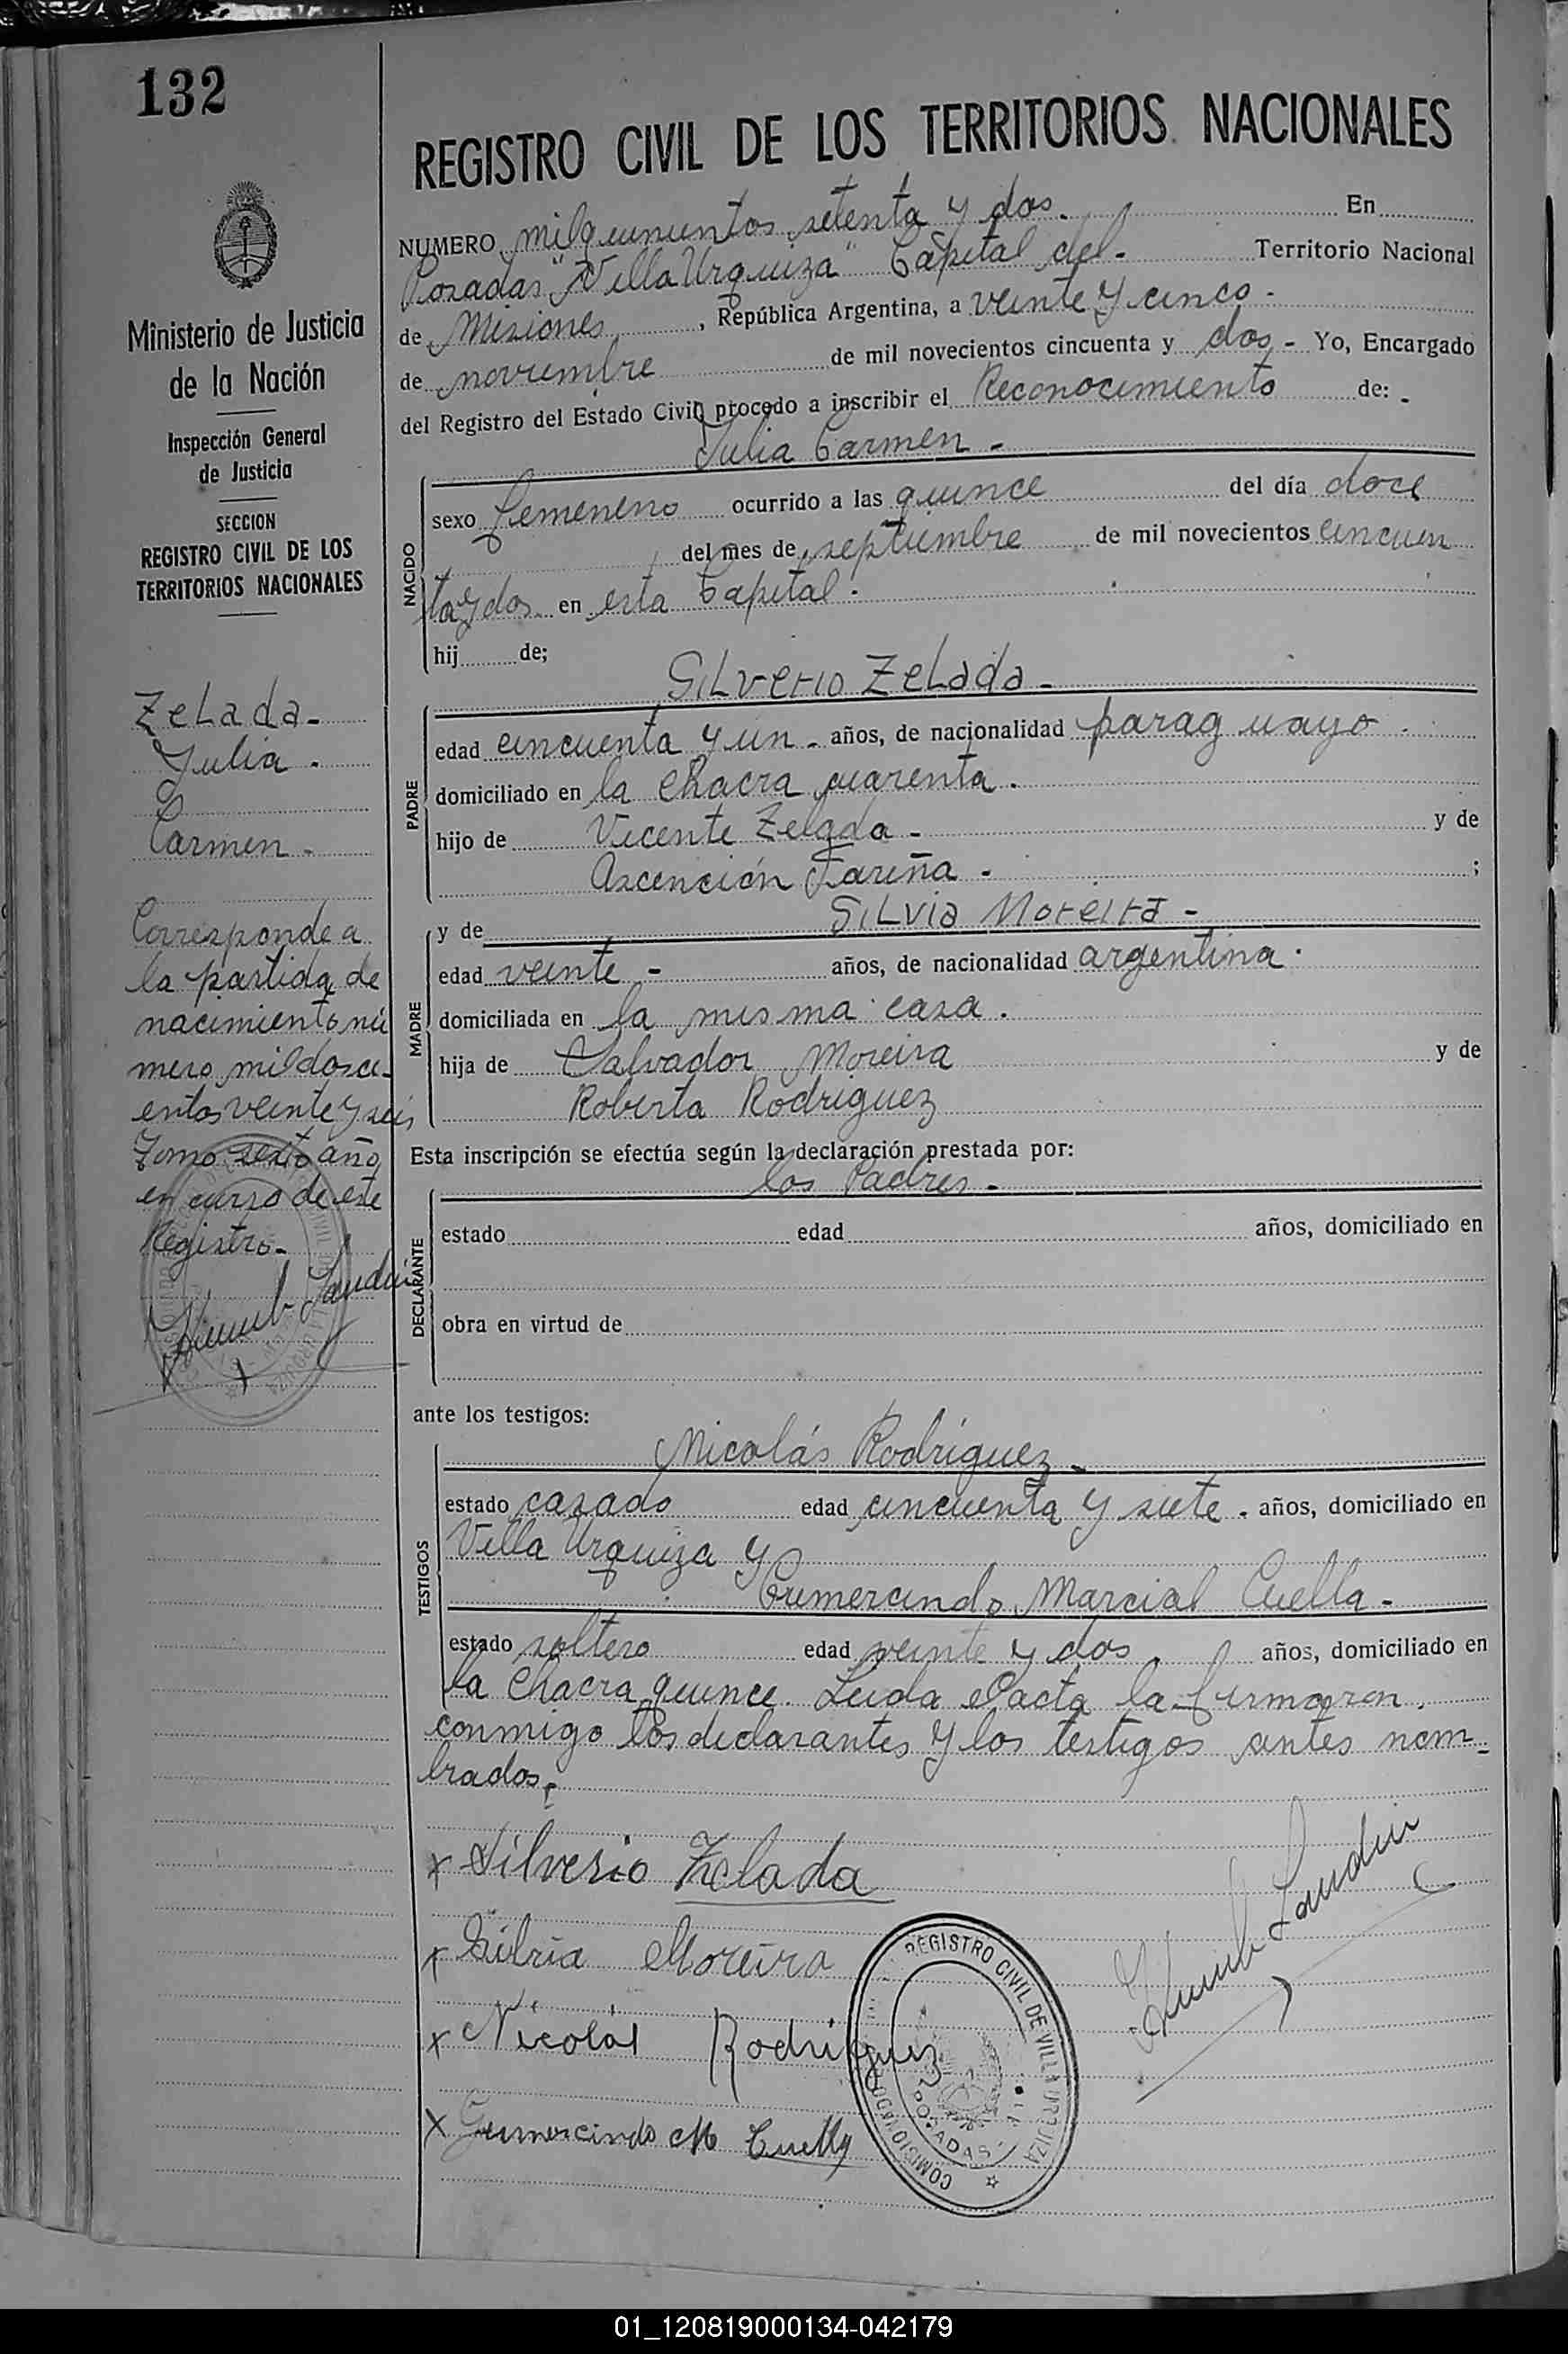 132
REGISTRO CIVIL DE LOS TERRITORIOS NACIONALES
Ministerio de Justicia
de la Nación
Inspección General
de Justicia
SECCION
REGISTRO CIVIL DE LOS
TERRITORIOS NACIONALES
Zelada-
Julia.
Carmen-
Corresponde a
la partida de
nacimiento nú
mero mil dosci-
entos veinte y seis
Tomo sexto año
en curso de este
Registro-
NUMERO milquinientos setenta y dos. En
Posadas "Villa Urquiza" Capital del- Territorio Nacional
de Misiones, República Argentina, a veinte y cinco-
de noviembre de mil novecientos cincuenta y dos,- Yo, Encargado
del Registro del Estado Civil procedo a inscribir el Reconocimiento de:-
Julia Carmen-
NACIDO
sexo femenino ocurrido a las quince del día doce
del mes de septiembre de mil novecientos cincuen
ta y dos en esta Capital.
hij de;
Silverio Zelada-
PADRE
edad cincuenta y un- años, de nacionalidad paraguayo.
domiciliado en la Chacra cuarenta.
hijo de Vicente Zelada- y de
Ascención Fariña- ;
y de Silvia Moreira-
MADRE
edad veinte- años, de nacionalidad argentina.
domiciliada en la misma casa.
hija de Salvador Moreira y de
Roberta Rodriguez
Esta inscripción se efectúa según la declaración prestada por:
los Padres-
DECLARANTE
estado edad años, domiciliado en
obra en virtud de
ante los testigos:
Nicolás Rodriguez-
TESTIGOS
estado casado edad cincuenta y siete. años, domiciliado en
Villa Urquiza y
Gumercindo Marcial Cuella-
estado soltero edad veinte y dos. años, domiciliado en
la Chacra quince. Leida el acta la firmaron
conmigo los declarantes y los testigos antes nom-
brados.
x Silverio Zelada
x Silvia Moreira
x Nicolás Rodriguez
x Gumercindo M Cuella
REGISTRO CIVIL DE VILLA URQUIZA
POSADAS
01_120819000134-042179